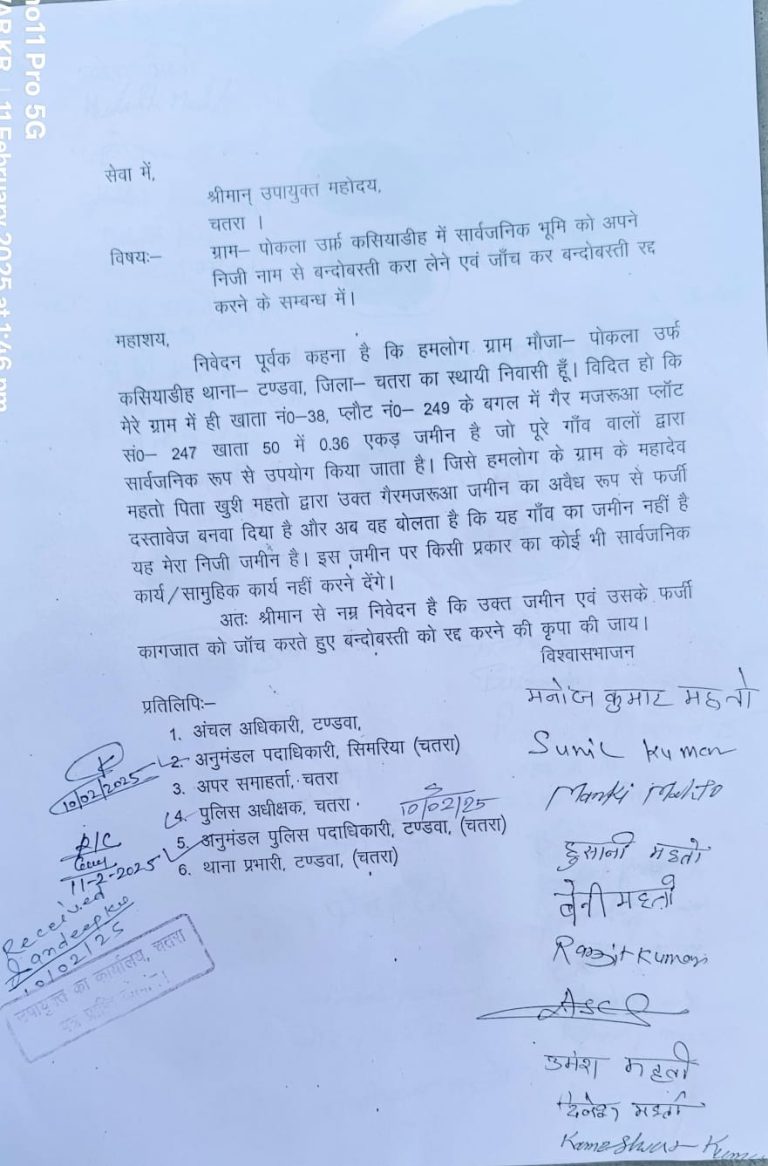 no11 Pro 5G
11 February 2025 at 1:46 pm
सेवा में,
श्रीमान् उपायुक्त महोदय,
चतरा ।
विषयः– ग्राम– पोकला उर्फ़ कसियाडीह में सार्वजनिक भूमि को अपने
निजी नाम से बन्दोबस्ती करा लेने एवं जाँच कर बन्दोबस्ती रद्द
करने के सम्बन्ध में।
महाशय,
निवेदन पूर्वक कहना है कि हमलोग ग्राम मौजा– पोकला उर्फ
कसियाडीह थाना– टण्डवा, जिला– चतरा का स्थायी निवासी हूँ। विदित हो कि
मेरे ग्राम में ही खाता नं०–38, प्लौट नं०– 249 के बगल में गैर मजरूआ प्लॉट
सं०– 247 खाता 50 में 0.36 एकड़ जमीन है जो पूरे गाँव वालों द्वारा
सार्वजनिक रूप से उपयोग किया जाता है। जिसे हमलोग के ग्राम के महादेव
महतो पिता खुशी महतो द्वारा उक्त गैरमजरूआ जमीन का अवैध रूप से फर्जी
दस्तावेज बनवा दिया है और अब वह बोलता है कि यह गाँव का जमीन नहीं है
यह मेरा निजी जमीन है। इस जमीन पर किसी प्रकार का कोई भी सार्वजनिक
कार्य/सामुहिक कार्य नहीं करने देंगे।
अतः श्रीमान से नम्र निवेदन है कि उक्त जमीन एवं उसके फर्जी
कागजात को जाँच करते हुए बन्दोबस्ती को रद्द करने की कृपा की जाय।
विश्वासभाजन
प्रतिलिपिः–
1. अंचल अधिकारी, टण्डवा,
2. अनुमंडल पदाधिकारी, सिमरिया (चतरा)
3. अपर समाहर्ता, चतरा
4. पुलिस अधीक्षक, चतरा
5. अनुमंडल पुलिस पदाधिकारी, टण्डवा, (चतरा)
6. थाना प्रभारी, टण्डवा, (चतरा)
10/02/2025
10/02/25
R/C
11-2-2025
Received
10/02/25
उपायुक्त का कार्यालय, चतरा
मनोज कुमार महतो
Sunil Kumar
हुसानी महतो
बेनी महतो
Ranjit Kumar
उमेश महतो
दिनेश महतो
Kameshwar Kumar